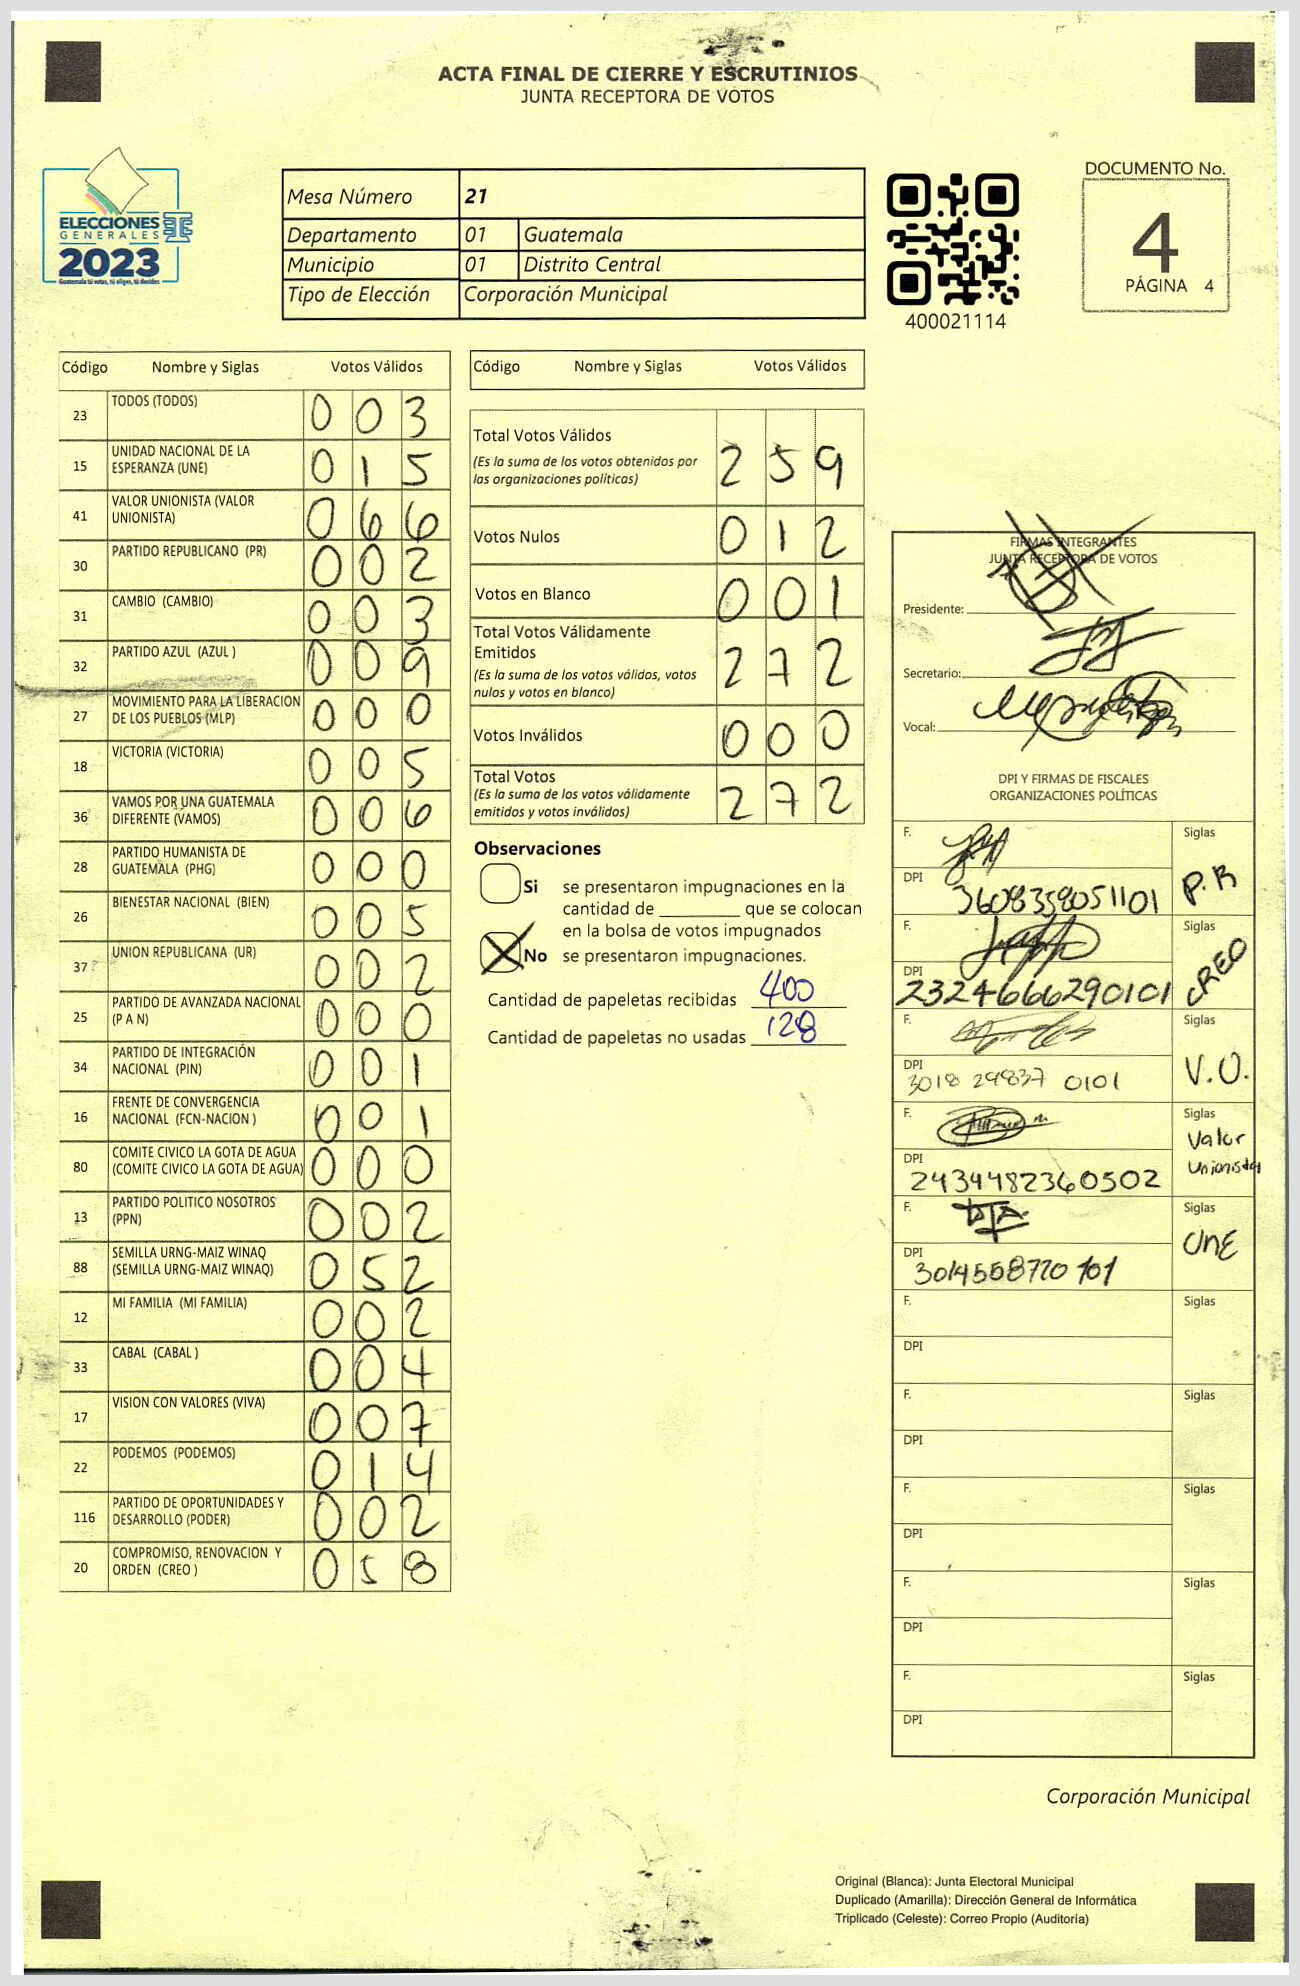 ACTA FINAL DE CIERRE Y ESCRUTINIOS
JUNTA RECEPTORA DE VOTOS
ELECCIONES
GENERALES
2023
Guatemala tú votas, tú eliges, tú decides
Mesa Número 21
Departamento 01 Guatemala
Municipio 01 Distrito Central
Tipo de Elección Corporación Municipal
400021114
DOCUMENTO No.
4
PÁGINA 4
Código Nombre y Siglas Votos Válidos
23 TODOS (TODOS) 0 0 3
15 UNIDAD NACIONAL DE LA
ESPERANZA (UNE) 0 1 5
41 VALOR UNIONISTA (VALOR
UNIONISTA) 0 6 6
30 PARTIDO REPUBLICANO (PR) 0 0 2
31 CAMBIO (CAMBIO) 0 0 3
32 PARTIDO AZUL (AZUL ) 0 0 9
27 MOVIMIENTO PARA LA LIBERACION
DE LOS PUEBLOS (MLP) 0 0 0
18 VICTORIA (VICTORIA) 0 0 5
36 VAMOS POR UNA GUATEMALA
DIFERENTE (VAMOS) 0 0 6
28 PARTIDO HUMANISTA DE
GUATEMALA (PHG) 0 0 0
26 BIENESTAR NACIONAL (BIEN) 0 0 5
37 UNION REPUBLICANA (UR) 0 0 2
25 PARTIDO DE AVANZADA NACIONAL
(P A N) 0 0 0
34 PARTIDO DE INTEGRACIÓN
NACIONAL (PIN) 0 0 1
16 FRENTE DE CONVERGENCIA
NACIONAL (FCN-NACION ) 0 0 1
80 COMITE CIVICO LA GOTA DE AGUA
(COMITE CIVICO LA GOTA DE AGUA) 0 0 0
13 PARTIDO POLITICO NOSOTROS
(PPN) 0 0 2
88 SEMILLA URNG-MAIZ WINAQ
(SEMILLA URNG-MAIZ WINAQ) 0 5 2
12 MI FAMILIA (MI FAMILIA) 0 0 2
33 CABAL (CABAL ) 0 0 4
17 VISION CON VALORES (VIVA) 0 0 7
22 PODEMOS (PODEMOS) 0 1 4
116 PARTIDO DE OPORTUNIDADES Y
DESARROLLO (PODER) 0 0 2
20 COMPROMISO, RENOVACION Y
ORDEN (CREO ) 0 5 8
Código Nombre y Siglas Votos Válidos
Total Votos Válidos
(Es la suma de los votos obtenidos por
las organizaciones políticas) 2 5 9
Votos Nulos 0 1 2
Votos en Blanco 0 0 1
Total Votos Válidamente
Emitidos
(Es la suma de los votos válidos, votos
nulos y votos en blanco) 2 7 2
Votos Inválidos 0 0 0
Total Votos
(Es la suma de los votos válidamente
emitidos y votos inválidos) 2 7 2
Observaciones
Si se presentaron impugnaciones en la
cantidad de ________ que se colocan
en la bolsa de votos impugnados
No se presentaron impugnaciones.
Cantidad de papeletas recibidas 400
Cantidad de papeletas no usadas 128
FIRMAS INTEGRANTES
JUNTA RECEPTORA DE VOTOS
Presidente:
Secretario:
Vocal:
DPI Y FIRMAS DE FISCALES
ORGANIZACIONES POLÍTICAS
F. Siglas
DPI 3608358051101 P.R
F. Siglas
DPI 2324666290101 CREO
F. Siglas
DPI 3018 29837 0101 V.O.
F. Siglas
Valor
Unionista
DPI 2434482360502
F. Siglas
UNE
DPI 3014558770101
F. Siglas
DPI
F. Siglas
DPI
F. Siglas
DPI
F. Siglas
DPI
F. Siglas
DPI
Corporación Municipal
Original (Blanca): Junta Electoral Municipal
Duplicado (Amarilla): Dirección General de Informática
Triplicado (Celeste): Correo Propio (Auditoría)